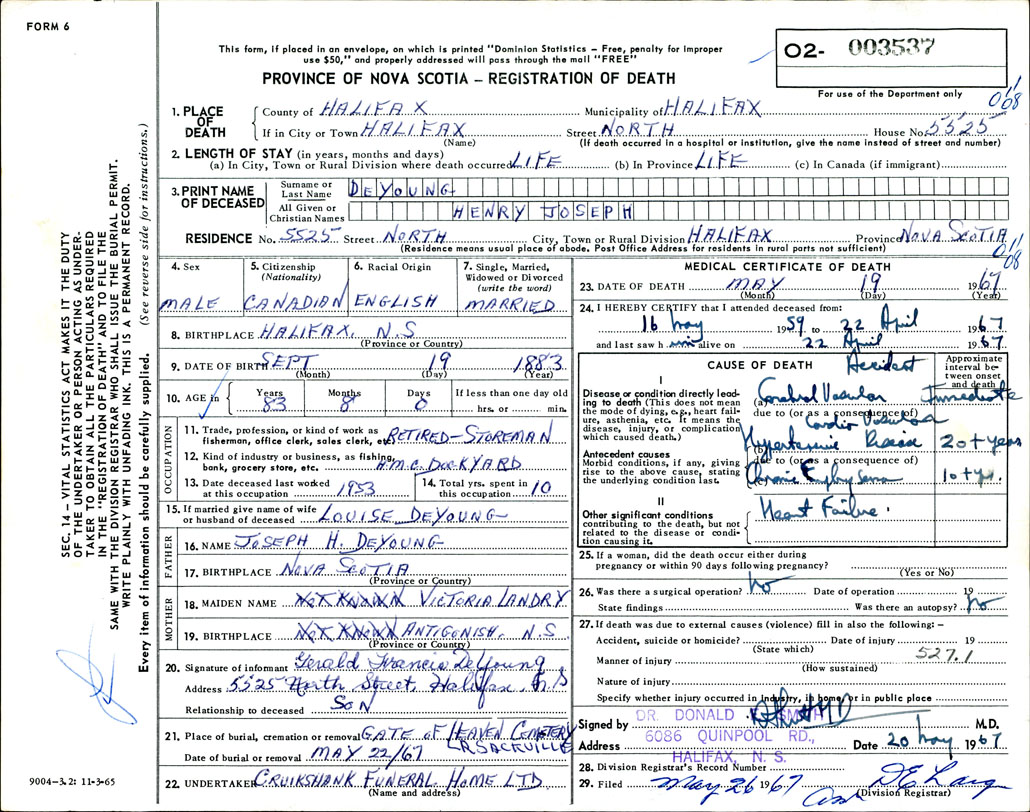 FORM 6
This form, if placed in an envelope, on which is printed "Dominion Statistics – Free, penalty for improper
use $50," and properly addressed will pass through the mail "FREE"
PROVINCE OF NOVA SCOTIA – REGISTRATION OF DEATH
O2- 003537
For use of the Department only
1. PLACE OF DEATH County of HALIFAX Municipality of HALIFAX
If in City or Town HALIFAX Street NORTH House No. 5525
(Name) (If death occurred in a hospital or institution, give the name instead of street and number)
2. LENGTH OF STAY (in years, months and days)
(a) In City, Town or Rural Division where death occurred LIFE (b) In Province LIFE (c) In Canada (if immigrant)
3. PRINT NAME OF DECEASED Surname or Last Name DEYOUNG
All Given or Christian Names HENRY JOSEPH
RESIDENCE No. 5525 Street NORTH City, Town or Rural Division HALIFAX Province NOVA SCOTIA
(Residence means usual place of abode. Post Office Address for residents in rural parts not sufficient)
4. Sex MALE
5. Citizenship (Nationality) CANADIAN
6. Racial Origin ENGLISH
7. Single, Married, Widowed or Divorced (write the word) MARRIED
8. BIRTHPLACE HALIFAX, N.S
(Province or Country)
9. DATE OF BIRTH SEPT 19 1883
(Month) (Day) (Year)
10. AGE in Years 83 Months 8 Days 0 If less than one day old hrs. or min.
OCCUPATION
11. Trade, profession, or kind of work as fisherman, office clerk, sales clerk, etc. RETIRED-STOREMAN
12. Kind of industry or business, as fishing, bank, grocery store, etc. H.M.C. DOCKYARD
13. Date deceased last worked at this occupation 1953
14. Total yrs. spent in this occupation 10
15. If married give name of wife or husband of deceased LOUISE DEYOUNG
FATHER
16. NAME JOSEPH H. DEYOUNG
17. BIRTHPLACE NOVA SCOTIA
(Province or Country)
MOTHER
18. MAIDEN NAME NOT KNOWN VICTORIA LANDRY
19. BIRTHPLACE NOT KNOWN ANTIGONISH, N.S.
(Province or Country)
20. Signature of informant Gerald Francis DeYoung
Address 5525 North Street, Halifax, N.S
Relationship to deceased SON
21. Place of burial, cremation or removal GATE OF HEAVEN CEMETERY
LR. SACKVILLE
Date of burial or removal MAY 22/67
22. UNDERTAKER CRUIKSHANK FUNERAL HOME LTD.
(Name and address)
MEDICAL CERTIFICATE OF DEATH
23. DATE OF DEATH MAY 19 1967
(Month) (Day) (Year)
24. I HEREBY CERTIFY that I attended deceased from:
16 May 1959 to 22 April 1967
and last saw him alive on 22 April 1967
CAUSE OF DEATH
Approximate interval between onset and death
I
Disease or condition directly leading to death (This does not mean the mode of dying, e.g., heart failure, asthenia, etc. It means the disease, injury, or complication which caused death.)
(a) Cerebral Vascular Accident Immediate
due to (or as a consequence of)
Antecedent causes
Morbid conditions, if any, giving rise to the above cause, stating the underlying condition last.
(b) Hypertensive Cardio Vascular Disease 20+ years
due to (or as a consequence of)
Chronic Emphysema 10+ yr.
II
Other significant conditions contributing to the death, but not related to the disease or condition causing it.
Heart Failure.
25. If a woman, did the death occur either during pregnancy or within 90 days following pregnancy?
(Yes or No)
26. Was there a surgical operation? No Date of operation 19
State findings Was there an autopsy? No
27. If death was due to external causes (violence) fill in also the following: –
Accident, suicide or homicide? Date of injury 19
(State which)
527.1
Manner of injury
(How sustained)
Nature of injury
Specify whether injury occurred in Industry, in home, or in public place
Signed by DR. DONALD F. SMITH M.D.
Address 6086 QUINPOOL RD., HALIFAX, N. S. Date 20 May 1967
28. Division Registrar's Record Number
29. Filed May 26 1967
(Division Registrar)
9004-3.2: 11-3-65
SEC. 14 – VITAL STATISTICS ACT MAKES IT THE DUTY
OF THE UNDERTAKER OR PERSON ACTING AS UNDER-
TAKER TO OBTAIN ALL THE PARTICULARS REQUIRED
IN THE "REGISTRATION OF DEATH" AND TO FILE THE
SAME WITH THE DIVISION REGISTRAR WHO SHALL ISSUE THE BURIAL PERMIT.
WRITE PLAINLY WITH UNFADING INK. THIS IS A PERMANENT RECORD.
Every item of information should be carefully supplied. (See reverse side for instructions.)